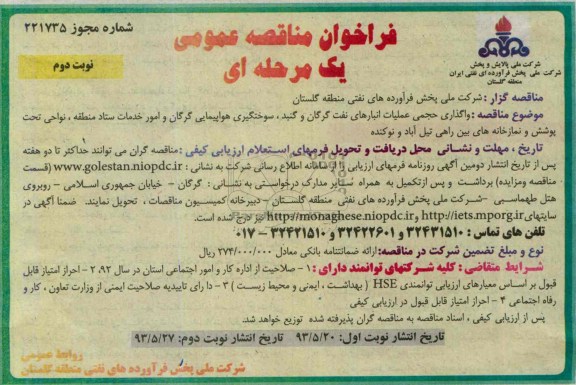 شماره مجوز ۲۲۱۷۳۵
فراخوان مناقصه عمومی
یک مرحله ای
نوبت دوم
شرکت ملی پالایش و پخش
شرکت ملی پخش فرآورده های نفتی ایران
منطقه گلستان
مناقصه گزار : شرکت ملی پخش فرآورده های نفتی منطقه گلستان
موضوع مناقصه : واگذاری حجمی عملیات انبارهای نفت گرگان و گنبد ، سوختگیری هواپیمایی گرگان و امور خدمات ستاد منطقه ، نواحی تحت
پوشش و نمازخانه های بین راهی تیل آباد و نوکنده
تاریخ ، مهلت و نشانی محل دریافت و تحویل فرمهای استعلام ارزیابی کیفی : مناقصه گران می توانند حداکثر تا دو هفته
پس از تاریخ انتشار دومین آگهی روزنامه فرمهای ارزیابی را از سامانه اطلاع رسانی شرکت به نشانی : www.golestan.niopdc.ir (قسمت
مناقصه ومزایده) برداشت و پس ازتکمیل به همراه سایر مدارک درخواستی به نشانی : گرگان - خیابان جمهوری اسلامی - روبروی
هتل طهماسبی - شرکت ملی پخش فرآورده های نفتی منطقه گلستان - دبیرخانه کمیسیون مناقصات ، تحویل نمایند. ضمنا آگهی در
سایتهای http://iets.mporg.ir و http://monaghese.niopdc.ir نیز درج شده است.
تلفن های تماس : ۳۲۴۳۱۵۱۰ و ۳۲۴۲۲۶۰۱ و ۳۲۴۲۱۵۱۰ - ۰۱۷
نوع و مبلغ تضمین شرکت در مناقصه: ارائه ضمانتنامه بانکی معادل ۲۷۴/۰۰۰/۰۰۰ ریال
شرایط متقاضی : کلیه شرکتهای توانمند دارای : ۱ - صلاحیت از اداره کار و امور اجتماعی استان در سال ۹۳ ۲ - احراز امتیاز قابل
قبول بر اساس معیارهای ارزیابی توانمندی HSE ( بهداشت ، ایمنی و محیط زیست ) ۳ - دا رای تاییدیه صلاحیت ایمنی از وزارت تعاون ، کار و
رفاه اجتماعی ۴ - احراز امتیاز قابل قبول در ارزیابی کیفی
پس از ارزیابی کیفی ، اسناد مناقصه به مناقصه گران پذیرفته شده توزیع خواهد شد.
تاریخ انتشار نوبت اول: ۹۳/۵/۲۰ تاریخ انتشار نوبت دوم: ۹۳/۵/۲۷
روابط عمومی
شرکت ملی پخش فرآورده های نفتی منطقه گلستان